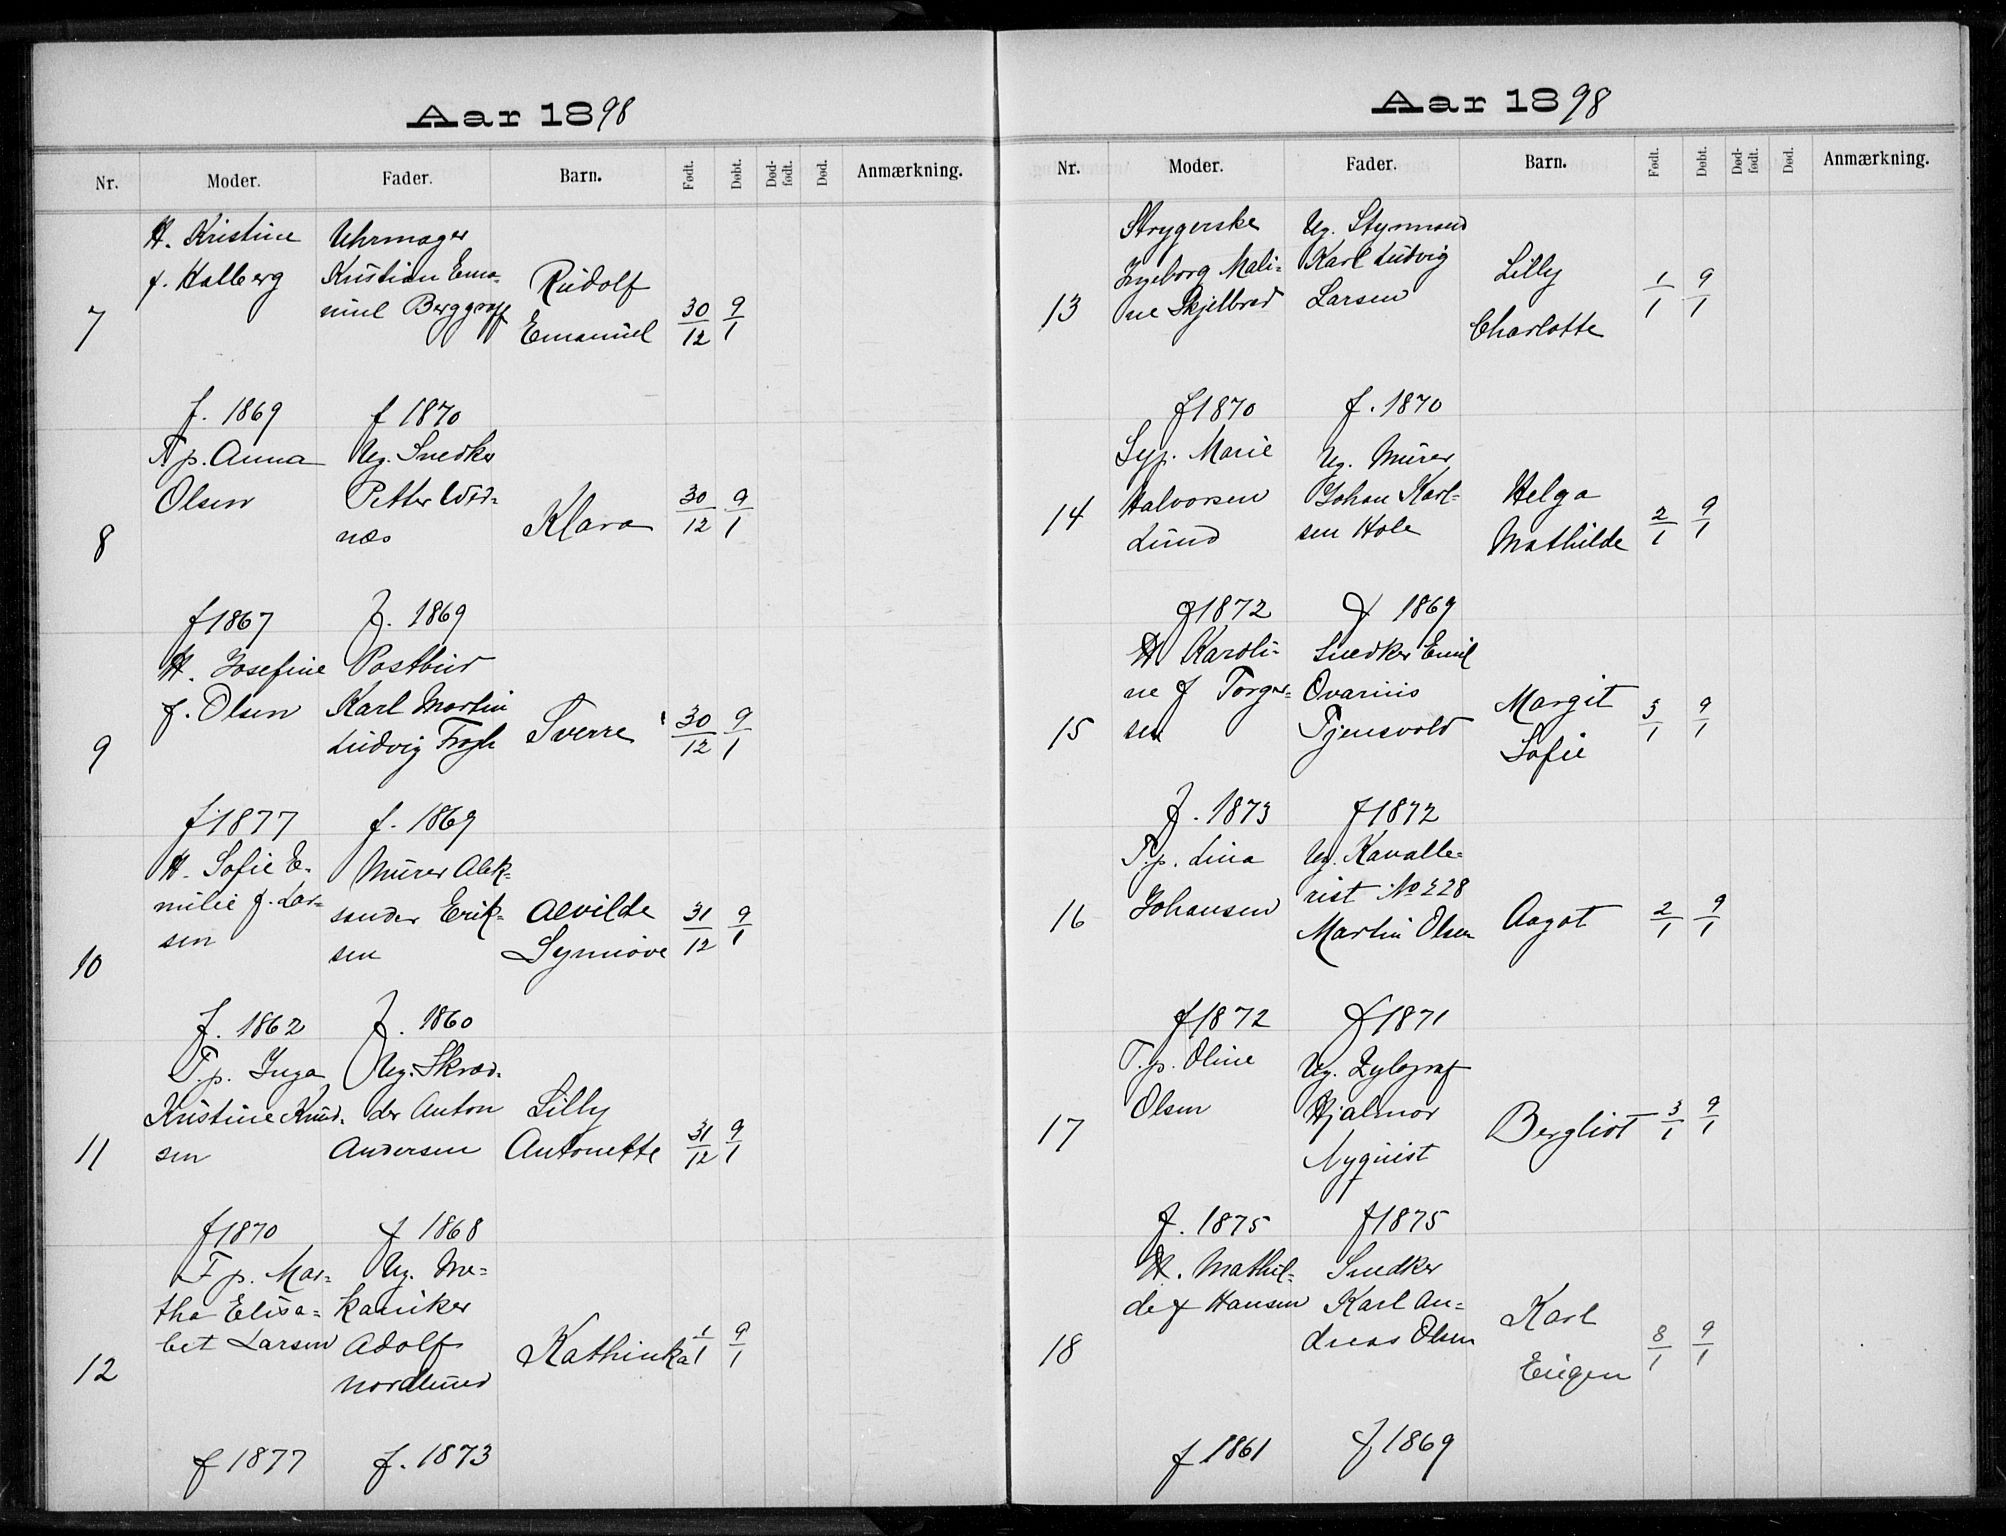 Aar 1898
Nr. Moder. Fader. Barn. Født. Døbt. Død-født. Død. Anmærkning.
7
H. Kristine
f. Halberg
f. 1869
Uhrmager
Kristian Ema-
nuel Berggraff
f 1870
Rudolf
Emanuel
30/12 9/1
8
T.p. Anna
Olsen
f 1867
Ug. Snedker
Petter Wed-
næs
f. 1869
Klara
30/12 9/1
9
H. Josefine
f. Olsen
f 1877
Postbud
Karl Martin
Ludvig Frogh
f. 1869
Sverre
30/12 9/1
10
H. Sofie E-
milie f. Lar-
sen
f. 1862
Murer Alek-
sander Erik-
sen
f. 1860
Alvilde
Synnøve
31/12 9/1
11
T.p. Inga
Kristine Knud-
sen
f 1870
Ug. Skræd-
der Anton
Andersen
f 1868
Lilly
Antonette
31/12 9/1
12
T p. Mar-
tha Elisa-
bet Larsen
f 1877
Ug. Me-
kaniker
Adolf
Nordlund
f. 1873
Kathinka
1/1 9/1
Aar 1898
Nr. Moder. Fader. Barn. Født. Døbt. Død-født. Død. Anmærkning.
13
Strygerske
Ingeborg Mali-
ne Skjelbred
f 1870
Ug. Styrmand
Karl Ludvig
Larsen
f. 1870
Lilly
Charlotte
1/1 9/1
14
Syp. Marie
Halvorsen
Lund
f 1872
Ug. Murer
Johan Karl-
sen Hole
f 1869
Helga
Mathilde
2/1 9/1
15
H Karoli-
ne f Torger-
sen
f. 1873
Snedker Emil
Ovarius
Tjensvold
f 1872
Margit
Sofie
3/1 9/1
16
T.p. Lina
Johansen
f 1872
Ug. Kavalle-
rist No 228
Martin Olsen
f 1871
Aagot
2/1 9/1
17
T.p. Oline
Olsen
f. 1875
Ug. Xylograf
Hjalmar
Nyquist
f 1875
Bergliot
3/1 9/1
18
H. Mathil-
de f Hansen
f 1861
Snedker
Karl An-
dreas Olsen
f 1869
Karl
Eugen
8/1 9/1